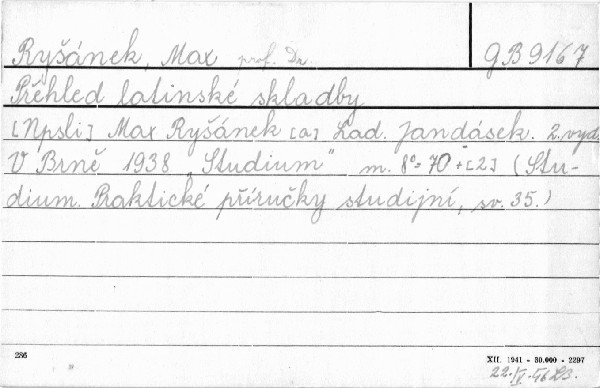 Ryšánek, Max prof. Dr. GB 9167
Přehled latinské skladby
[Npsli] Max Ryšánek [a] Lad. Jandásek. 2. vyd.
V Brně 1938 „Studium" m. 8° = 70 + [2] (Stu-
dium. Praktické příručky studijní, sv. 35.)
286
XII. 1941 - 30.000 - 2297
22.IV.46